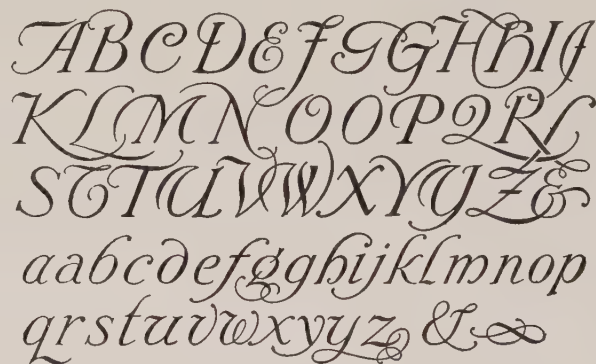 ABCDEFGGHHIJ
KLMN OOPQRL
STTUVWXYYZ&
aabcdefgghijklmnop
qrstuvwxyyz &